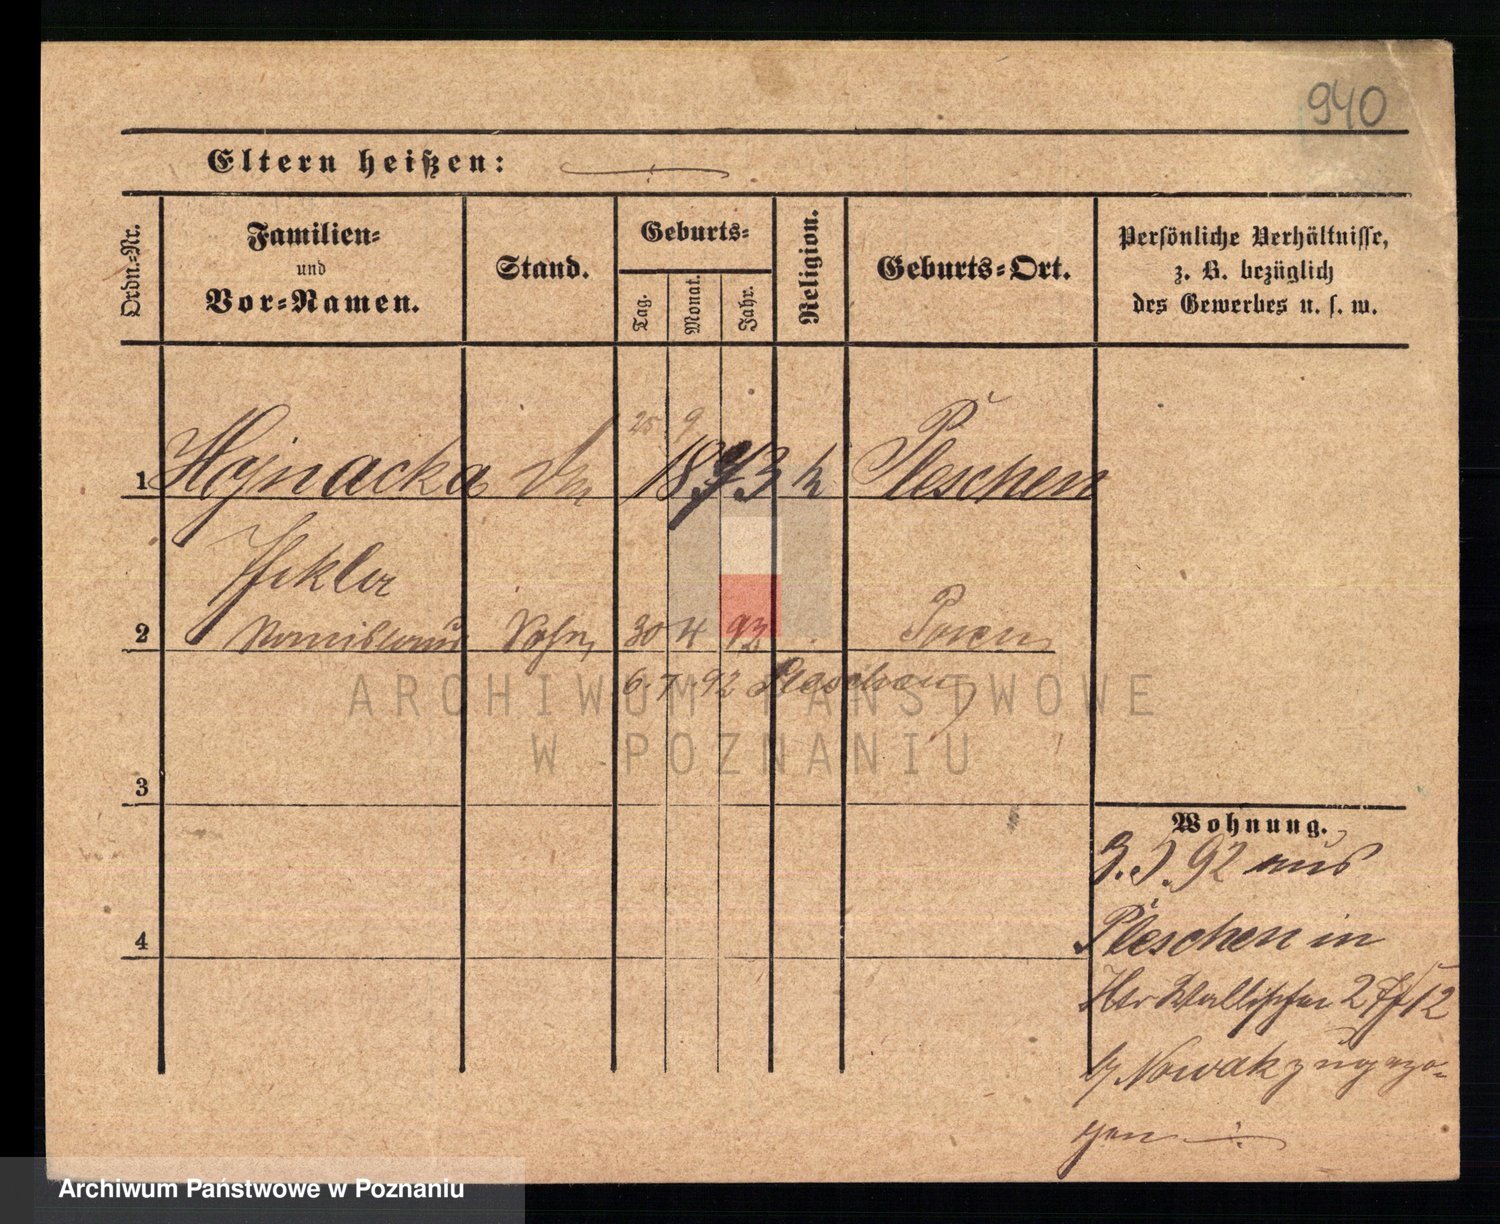 940
Eltern heißen:
Ordn.-Nr.
Familien-
und
Vor-Namen.
Stand.
Geburts-
Tag.
Monat.
Jahr.
Religion.
Geburts-Ort.
Persönliche Verhältnisse,
z. B. bezüglich
des Gewerbes u. s. w.
25 9
1 Hojnacka 1873 k Pleschen
Thekla
2 Stanislaus Sohn 30 4 92 Posen
6. 7. 92 Pleschen
ARCHIWUM PAŃSTWOWE
W POZNANIU
3
Wohnung.
3.5.92 aus
4
Pleschen in
Wallischei 12
b/ Nowak zugezo-
gen
Archiwum Państwowe w Poznaniu